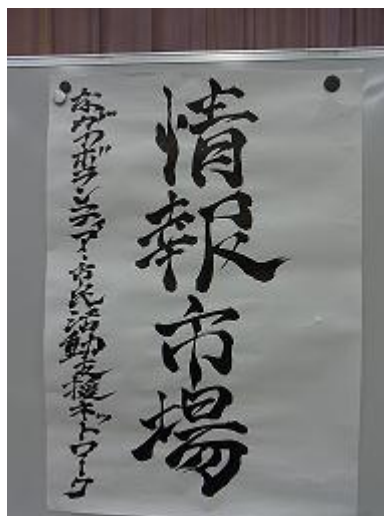 情報市場
ボランティア・市民活動支援ネットワーク